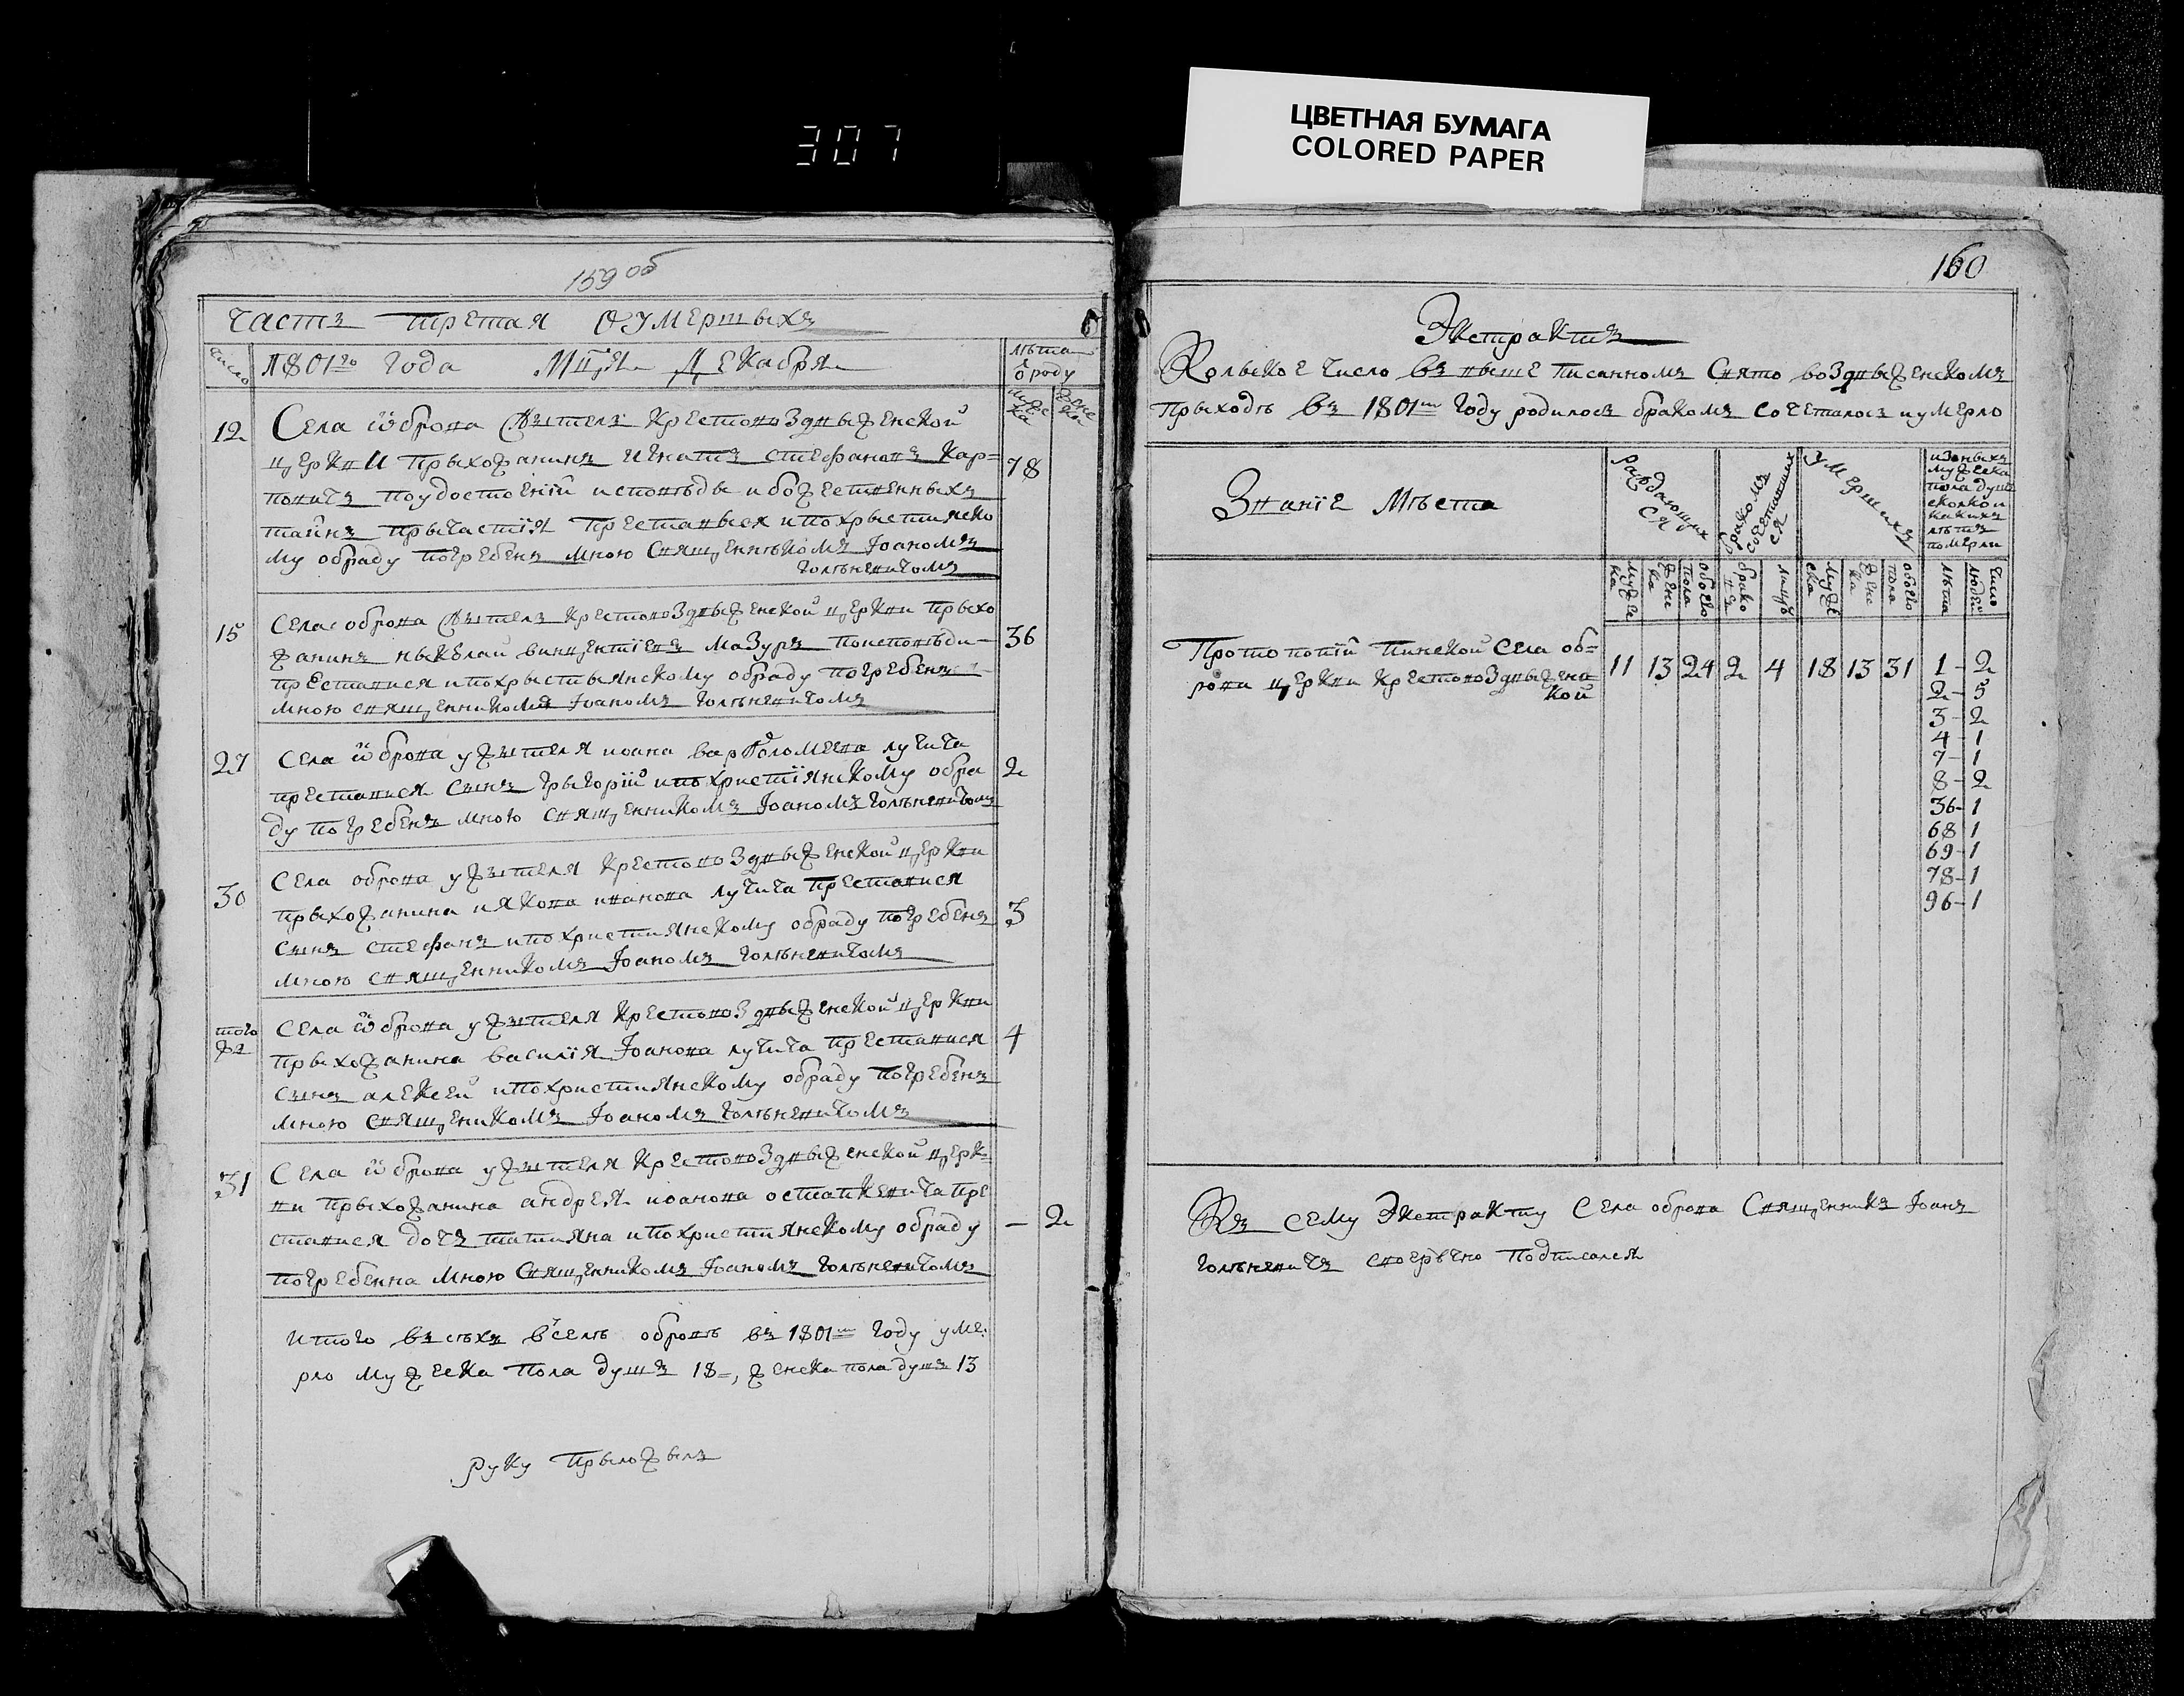 307
ЦВЕТНАЯ БУМАГА
COLORED PAPER
159 об
Часть третая о умершыхъ
число
1801го года Мц҃а Декабря
лѣта
ѿ роду
мужеска
женска
12
Села Ѡброва жытель Крестовоздвыженской
церкви прыхожанинъ Игнатъ Стефановъ Кар=
повичъ по удостоеніи исповѣды и божественныхъ
тайнъ прычастїя преставыся и по хрыстиянско
му обраду погребенъ мною Священныкомъ Іоаномъ
Голѣневичомъ
78
15
Села Оброва жытель Крестовоздвыженской церкви прыхо
жанинъ Ныколай Винцентіевъ Мазуръ по исповѣди
преставися и по хрыстыянскому обраду погребенъ
мною священникомъ Іоаномъ Голѣневичомъ
36
27
Села Ѡброва ужытеля Иоана Варѳоломеева Лучича
преставися сынъ Грыгорій и по христїянскому обра
ду погребенъ мною священникомъ Іоаномъ Голѣневичомъ
2
30
Села Оброва ужытеля Крестовоздвыженской церкви
прыхожанина Иякова Иванова Лучича преставися
сынъ Стефанъ и по християнскому обраду погребенъ
мною священникомъ Іоаномъ Голѣневичомъ
3
того
жъ
Села Ѡброва ужытеля Крестовоздвыженской церкви
прыхожанина Василїя Іоанова Лучича преставися
сынъ Алексей и по християнскому обраду погребенъ
мною священикомъ Іоаномъ Голѣневичомъ
4
31
Села Ѡброва ужытеля Крестовоздвыженской церк=
ви прыхожанина Андрея Иоанова Остапкевича пре
ставися дочъ Татияна и по християнскому обраду
погребенна мною Священникомъ Іоаномъ Голѣневичомъ
— 2
итого въ сѣхъ в селѣ Обровѣ въ 1801м году уме:
рло мужеска пола душъ 18, женска пола душъ 13
руку прыложылъ
160
Экстрактъ
Колькое число въ выше писанномъ Свято воздвыженскомъ
прыходѣ въ 1801м году родилось бракомъ сочеталось и умерло
Званїе Мѣста
Раждающих
ся
бракомъ
сочетавших
ся
Умершихъ
изоныхъ
мужеска
пола душъ
сколко и
какихъ
лѣтъ
померли
мужеска
женска
обоего пола
браковъ
лицъ
мужеска
женска
обоего пола
лѣта
число людей
Протопопїи Пинской Села Об=
рова церкви Крестовоздвыженс
кой
11 13 24 2 4 18 13 31
1 - 2
2 - 5
3 - 2
4 - 1
7 - 1
8 - 2
36 - 1
68 1
69 - 1
78 - 1
96 - 1
Къ сему Экстракту Села Оброва Священникъ Іоанъ
Голѣневичъ своеручно подписался